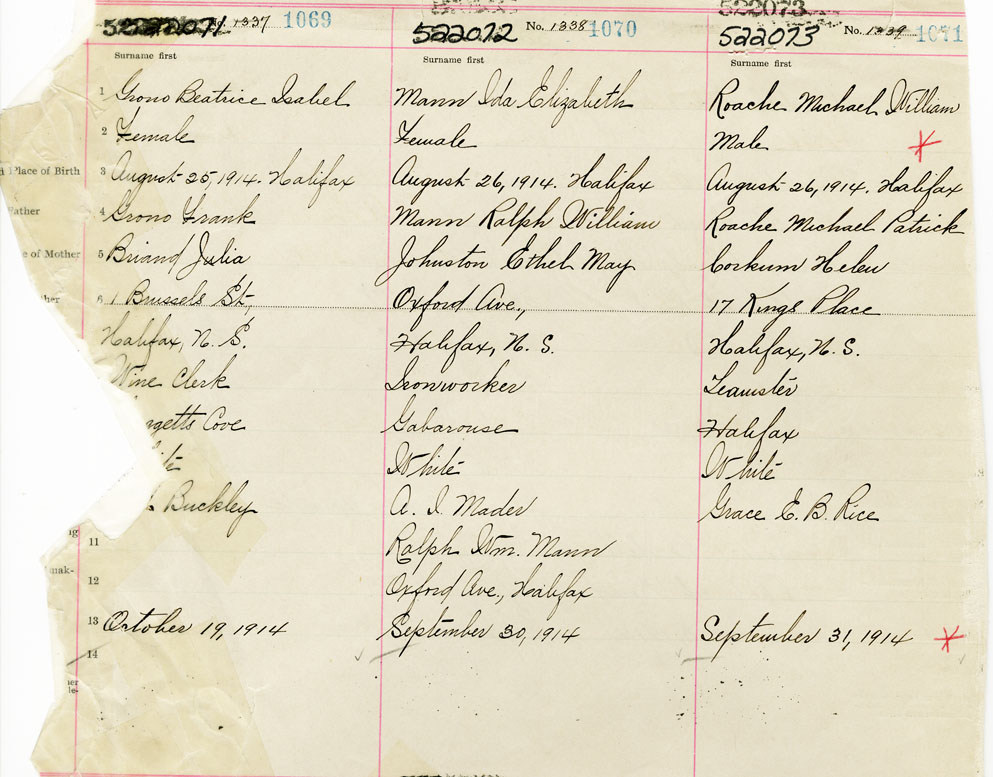 522071 No. 1337 1069
Surname first
1 Grono Beatrice Isabel
2 Female
Place of Birth 3 August 25, 1914. Halifax
Father 4 Grono Frank
e of Mother 5 Briand Julia
ther 6 1 Brussels St,
Halifax, N. S.
Wine Clerk
ggetts Cove
ite
Buckley
ng
11
mak-
12
13 October 19, 1914
14
er
le-
522072 No. 1338 1070
Surname first
Mann Ida Elizabeth
Female
August 26, 1914. Halifax
Mann Ralph William
Johnston Ethel May
Oxford Ave.,
Halifax, N. S.
Ironworker
Gabarouse
White
A. I. Mader
Ralph Wm. Mann
Oxford Ave., Halifax
September 30, 1914
522073
522073 No. 1339 1071
Surname first
Roache Michael William
Male
August 26, 1914. Halifax
Roache Michael Patrick
Corkum Helen
17 Kings Place
Halifax, N. S.
Teamster
Halifax
White
Grace E. B. Rice
September 31, 1914